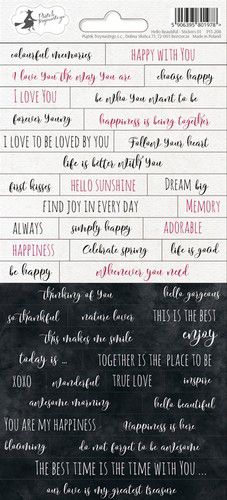 Piątek Trzynastego
5 906395 801978 >
Piątek Trzynastego s.c.
Hello Beautiful - Stickers 01 P13-206
Made in Poland
colourful memories HAPPY WITH YOU
I love You the Way You are choose happy
I LOVE YOU be who You want to be
forever Young happiness is being together
I LOVE TO BE LOVED BY YOU Follow Your heart
life is better with You
first kisses HELLO SUNSHINE DREAM big
FIND JOY IN EVERY DAY MEMORY
ALWAYS simply happy ADORABLE
HAPPINESS Celebrate spring life is good
be happy whenever you need
thinking of You hello gorgeous
so thankful nature lover THIS IS THE BEST
this makes me smile enjoy
today is ... TOGETHER IS THE PLACE TO BE
XOXO wonderful TRUE LOVE inspire
awesome morning hello beautiful
YOU ARE MY HAPPINESS Happiness is here
blooming do not forget to be awesome
THE BEST TIME IS THE TIME WITH YOU ...
our love is my greatest treasure